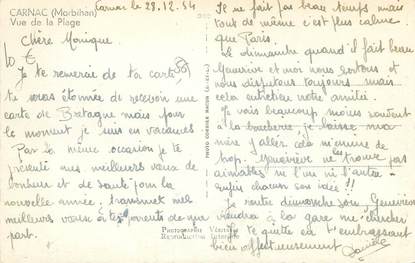 CARNAC (Morbihan)
Vue de la Plage
Carnac le 28.12.54
Chère Monique
Je te remercie de ta carte
tu seras étonnée de recevoir une
carte de Bretagne mais pour
le moment je suis en vacances
Par la même occasion je te
présente mes meilleurs vœux de
bonheur et de santé pour la
nouvelle année. transmet mes
meilleurs vœux à tes parents de ma
part.
Photographie Véritable
Reproduction Interdite
Il ne fait pas beau temps mais
tout de même c'est plus calme
que Paris.
Le dimanche quand il fait beau
Geneviève et moi nous sortons et
nous disputons toujours mais
cela entretient notre amitié.
Je vois beaucoup moins souvent
à la boucherie je laisse ma
mère j'aller cela m'ennuie de
trop. Geneviève ne trouve pas
aimables ni l'un ni l'autre.
enfin chacun son idée!!
Je rentre dimanche soir Geneviève
viendra à la gare me chercher
Je te quitte en t'embrassant
bien affectueusement